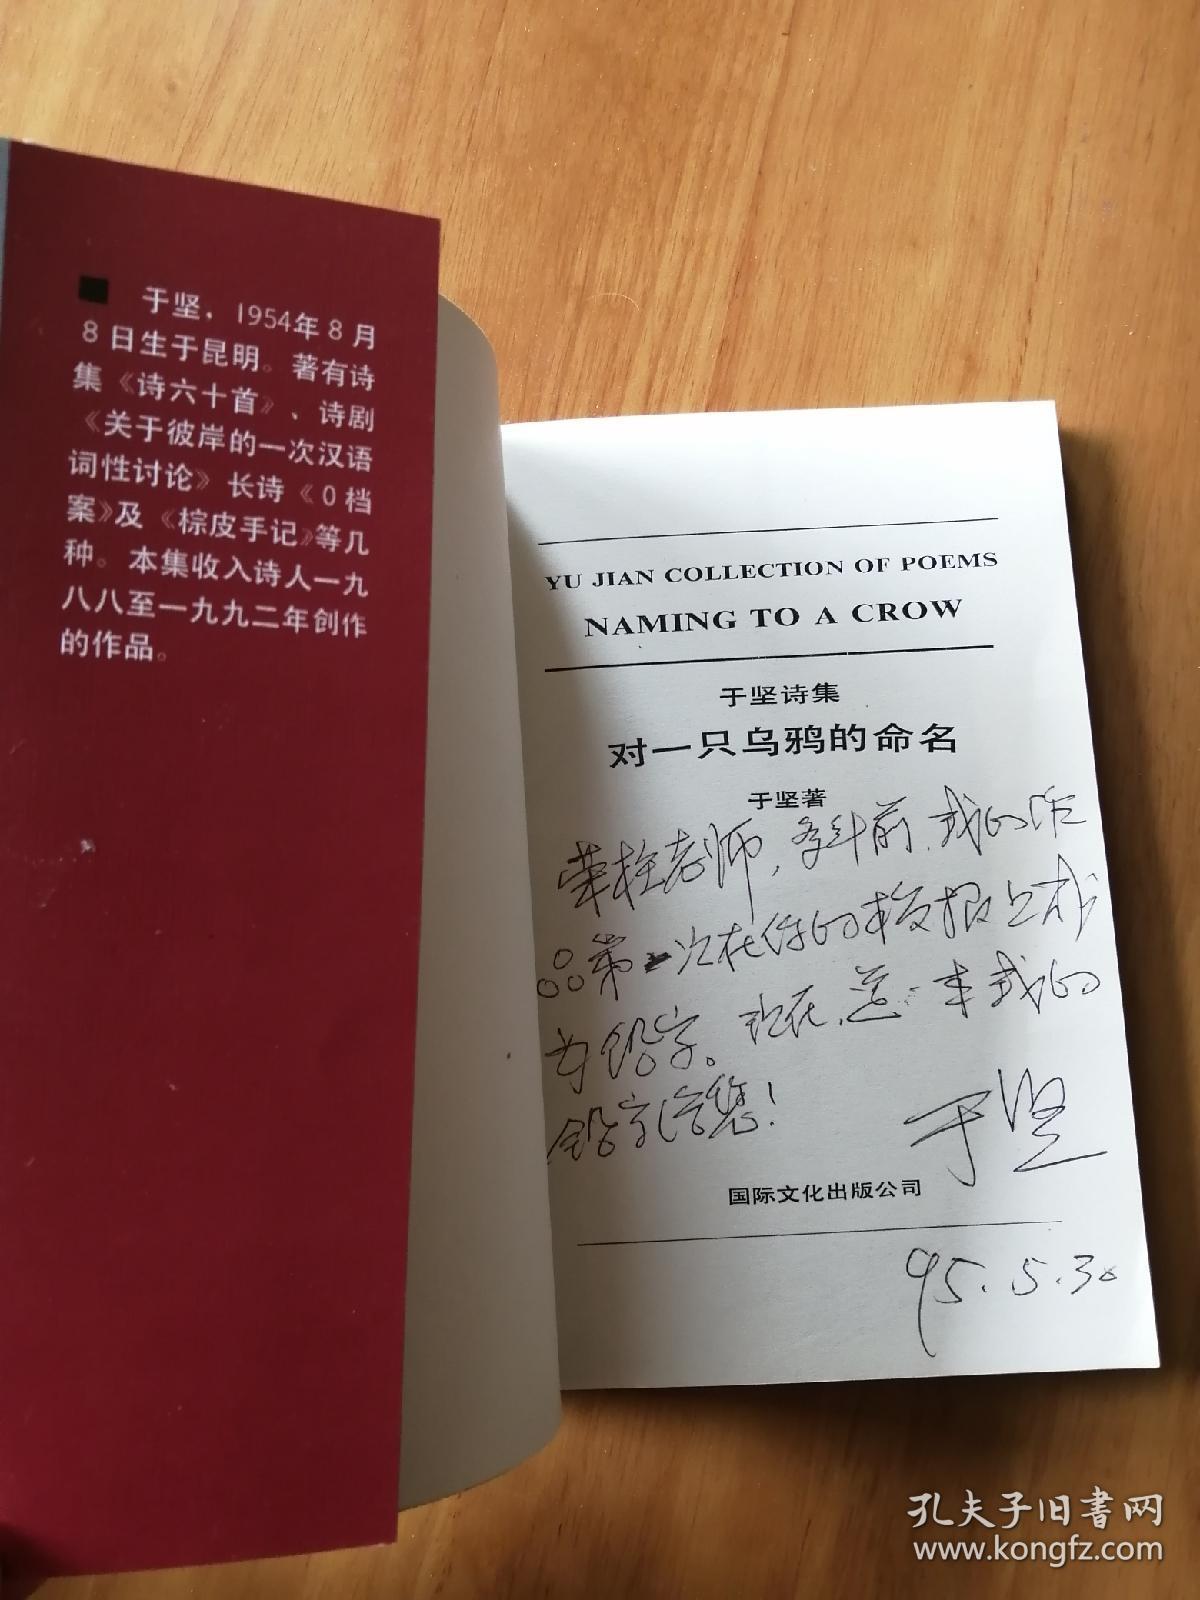 ■ 于坚，1954年8月
8日生于昆明。著有诗
集《诗六十首》、诗剧
《关于彼岸的一次汉语
词性讨论》长诗《0档
案》及《棕皮手记》等几
种。本集收入诗人一九
八八至一九九二年创作
的作品。
YU JIAN COLLECTION OF POEMS
NAMING TO A CROW
于坚诗集
对一只乌鸦的命名
于坚著
老师，前，我的作
品第一次在你的校报上成
为铅字。现在，送一本我的
铅字诗集！
于坚
国际文化出版公司
95.5.30
孔夫子旧书网
www.kongfz.com